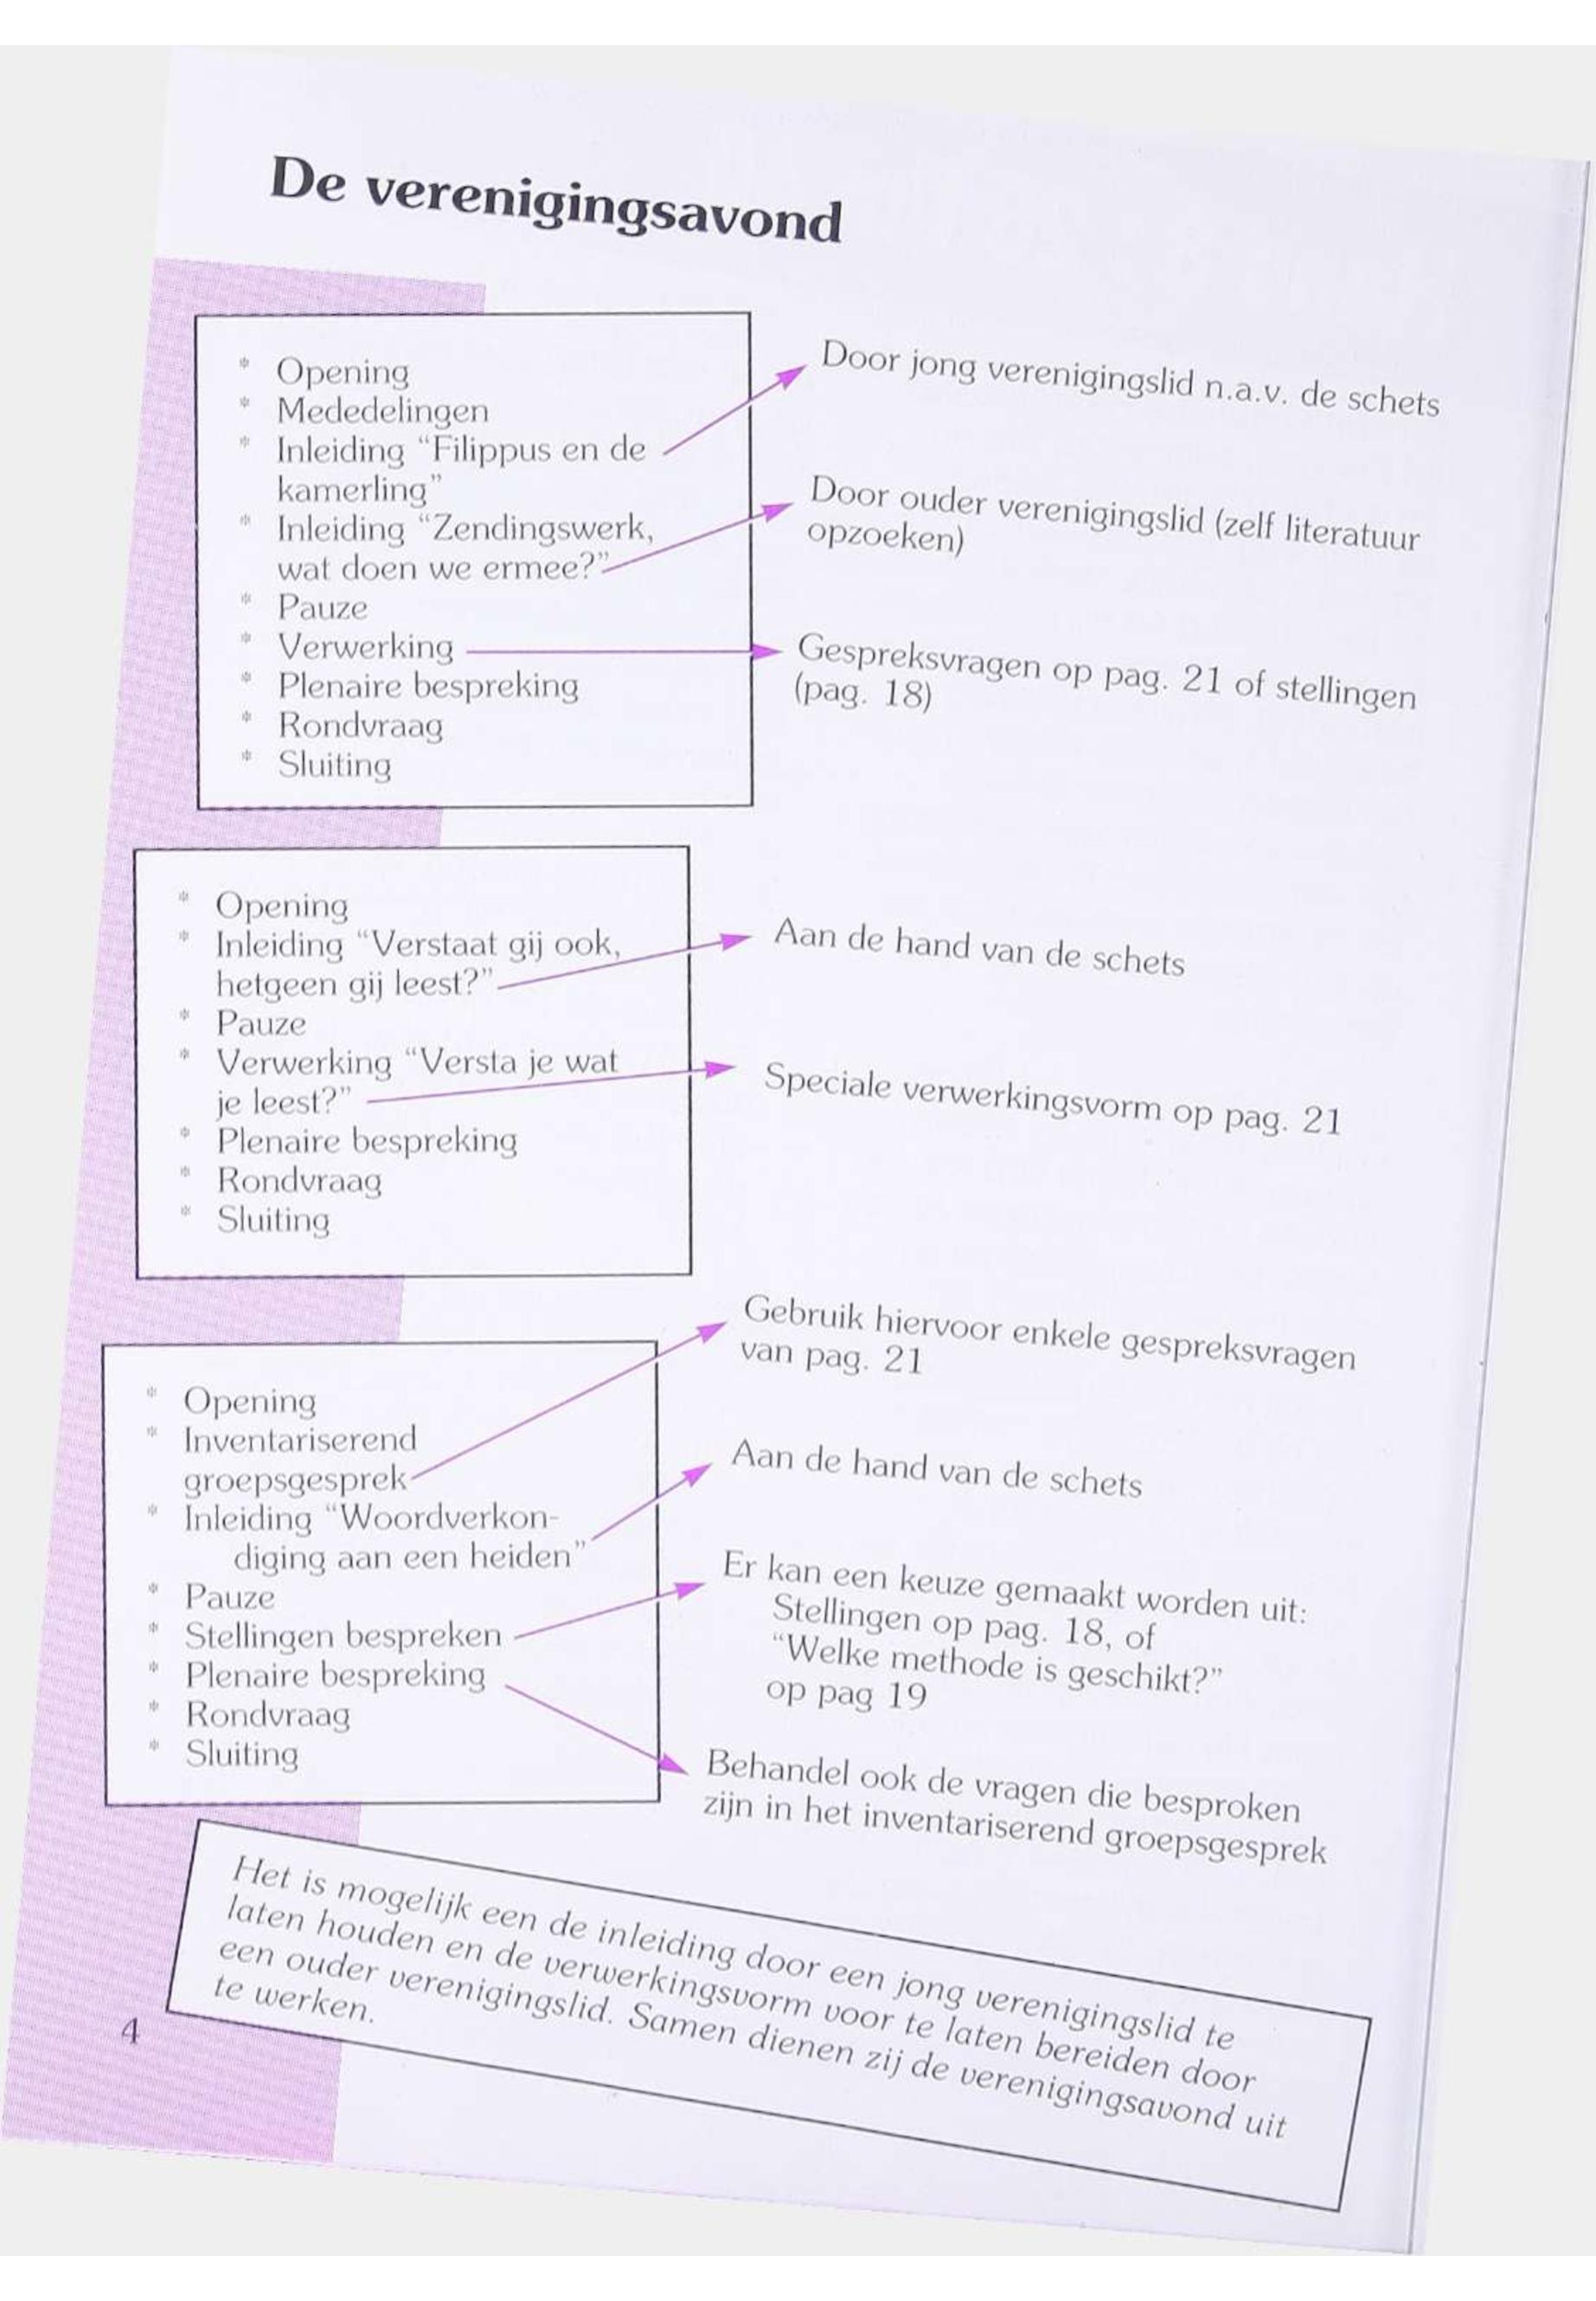 De verenigingsavond
* Opening
* Mededelingen
* Inleiding “Filippus en de
kamerling”
* Inleiding “Zendingswerk,
wat doen we ermee?”
* Pauze
* Verwerking
* Plenaire bespreking
* Rondvraag
* Sluiting
Door jong verenigingslid n.a.v. de schets
Door ouder verenigingslid (zelf literatuur
opzoeken)
Gespreksvragen op pag. 21 of stellingen
(pag. 18)
* Opening
* Inleiding “Verstaat gij ook,
hetgeen gij leest?”
* Pauze
* Verwerking “Versta je wat
je leest?”
* Plenaire bespreking
* Rondvraag
* Sluiting
Aan de hand van de schets
Speciale verwerkingsvorm op pag. 21
* Opening
* Inventariserend
groepsgesprek
* Inleiding “Woordverkon-
diging aan een heiden”
* Pauze
* Stellingen bespreken
* Plenaire bespreking
* Rondvraag
* Sluiting
Gebruik hiervoor enkele gespreksvragen
van pag. 21
Aan de hand van de schets
Er kan een keuze gemaakt worden uit:
Stellingen op pag. 18, of
“Welke methode is geschikt?”
op pag 19
Behandel ook de vragen die besproken
zijn in het inventariserend groepsgesprek
Het is mogelijk een de inleiding door een jong verenigingslid te
laten houden en de verwerkingsvorm voor te laten bereiden door
een ouder verenigingslid. Samen dienen zij de verenigingsavond uit
te werken.
4